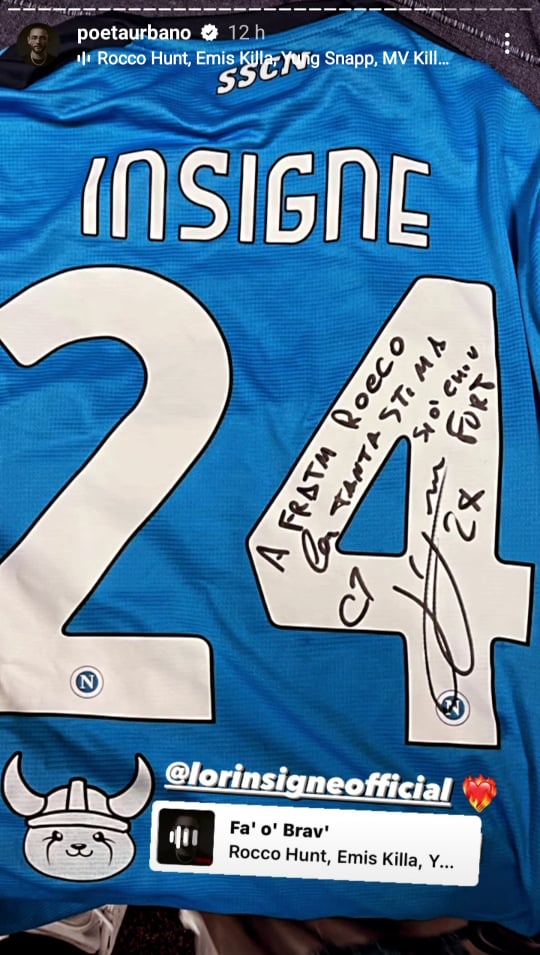 poetaurbano 12 h
Rocco Hunt, Emis Killa, Yung Snapp, MV Kill...
SSCN
INSIGNE
24
A FRATM ROCCO
CON TANTA STIMA
SI O' CHIU
FORT
24
N
N
@lorinsigneofficial
Fa' o' Brav'
Rocco Hunt, Emis Killa, Y...